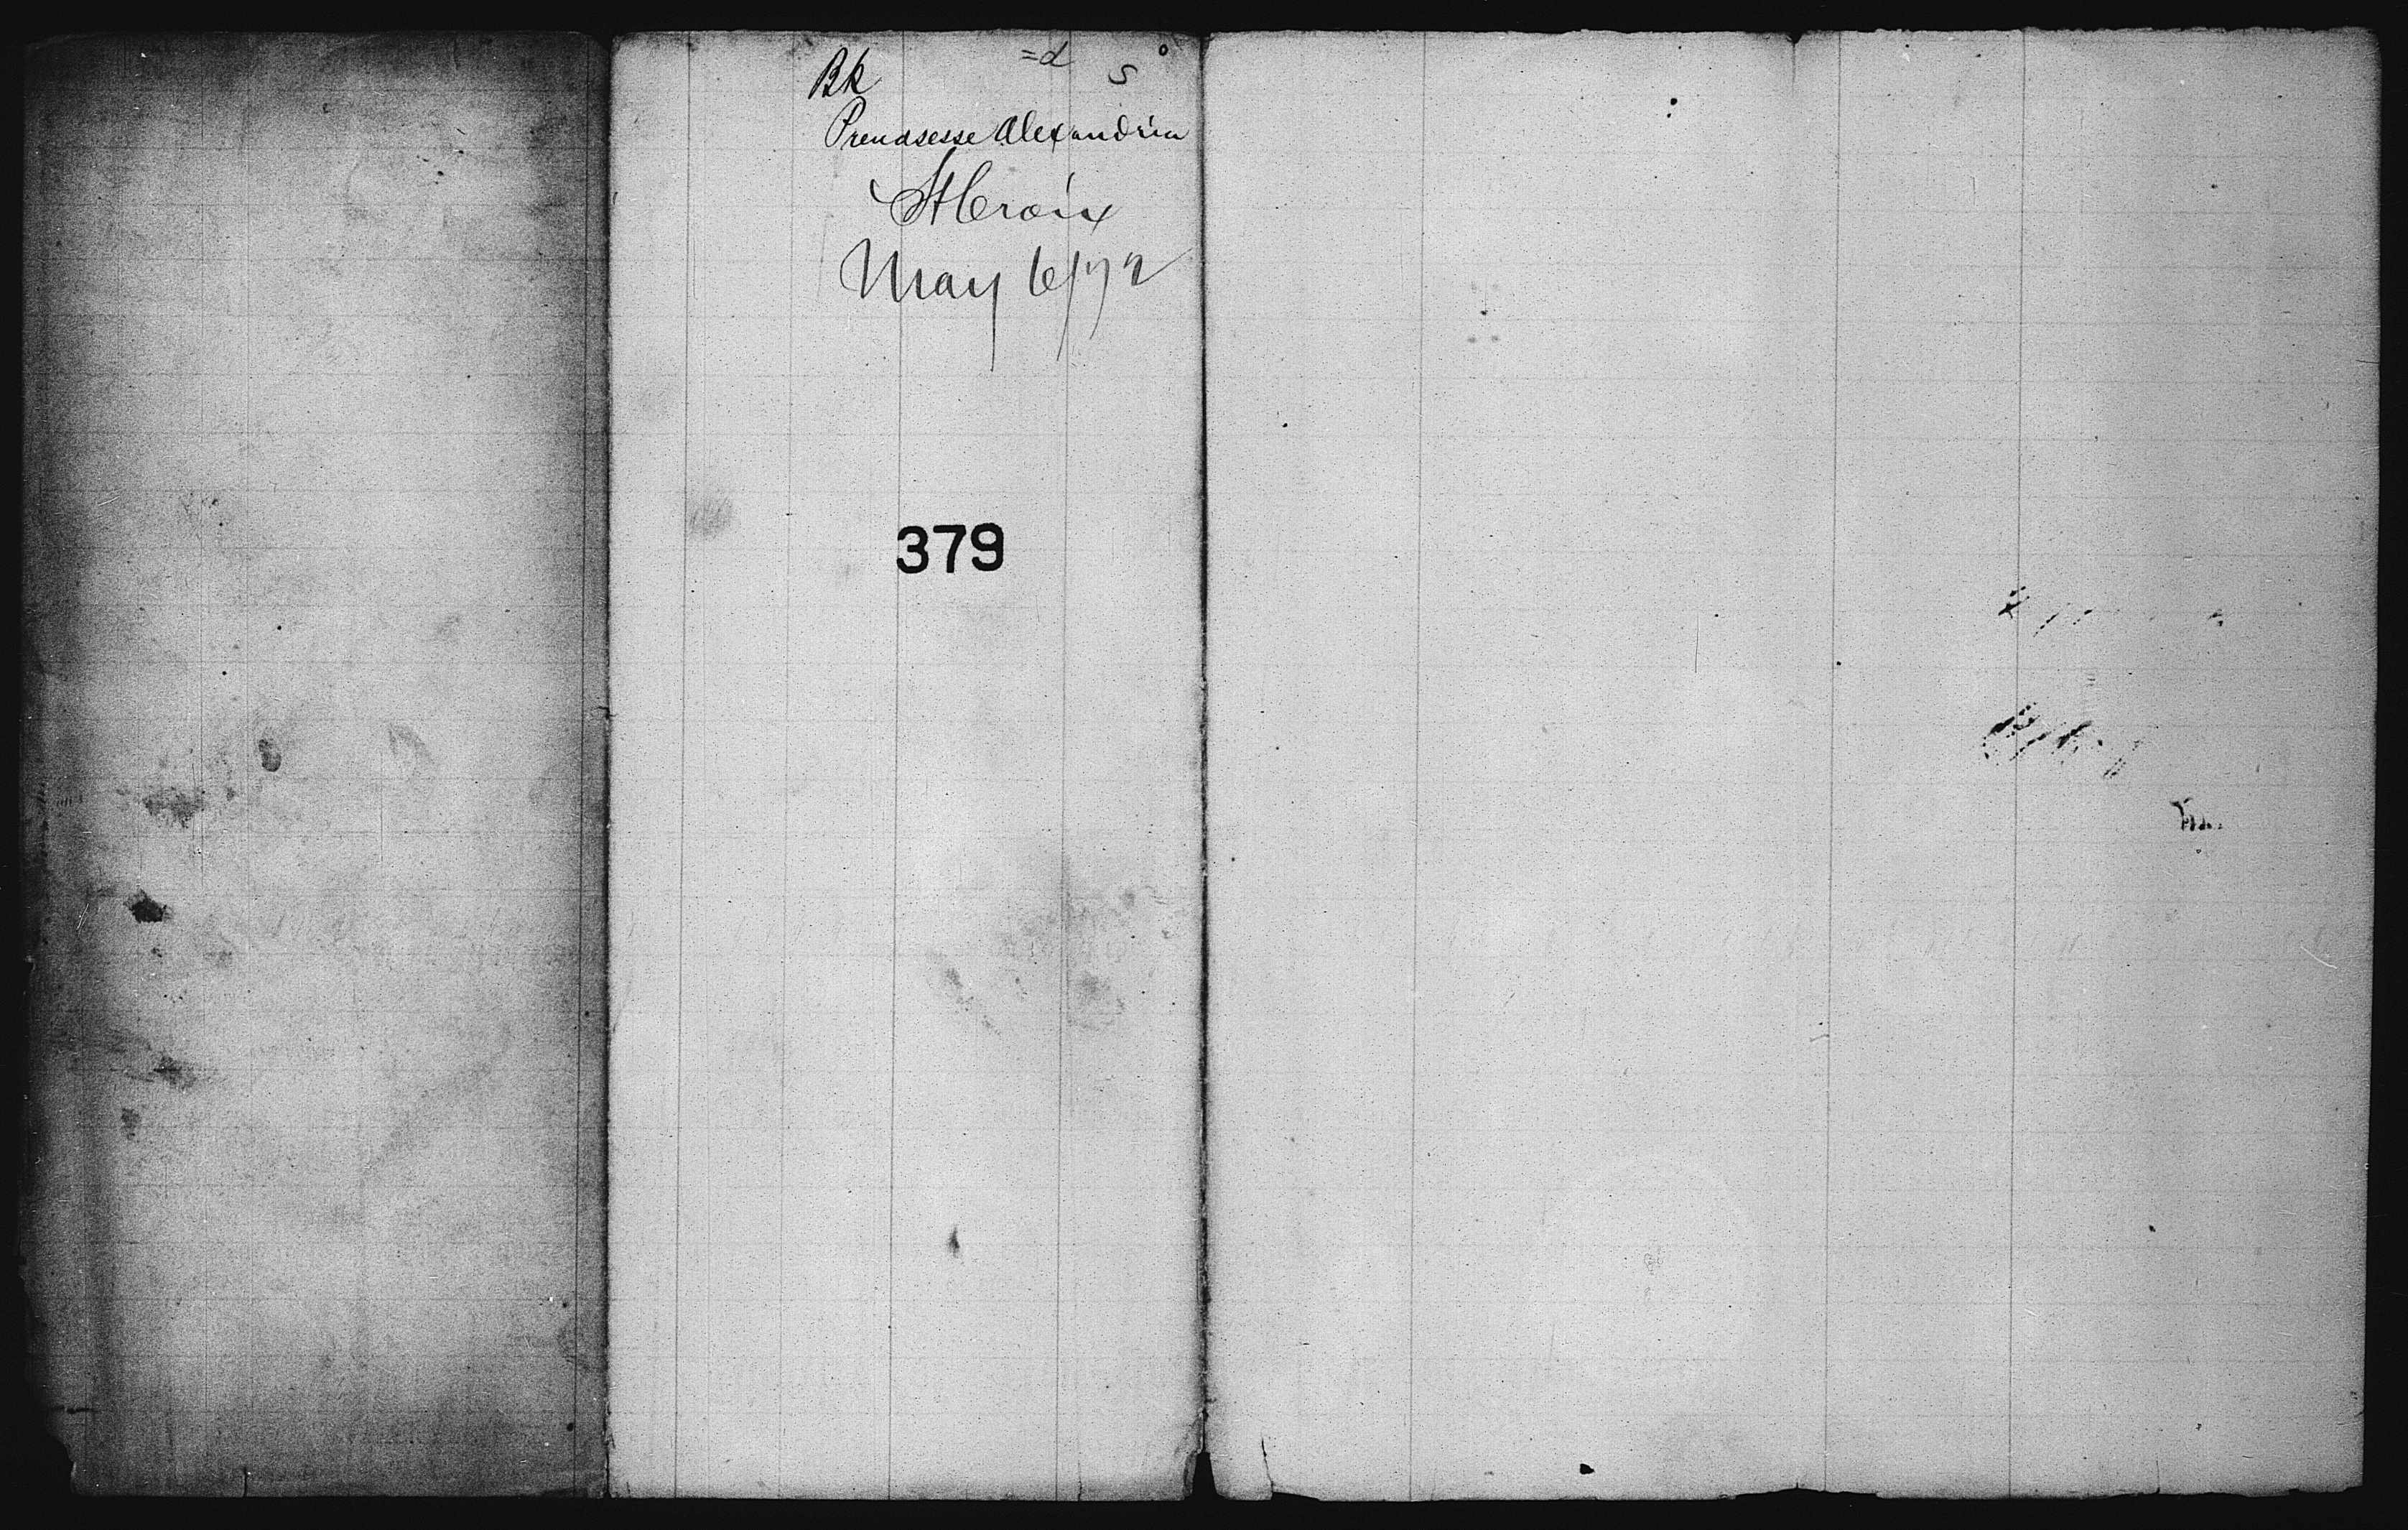 =d S°
Bk
Prendsesse Alexandria
St Croix
May 6/72
379